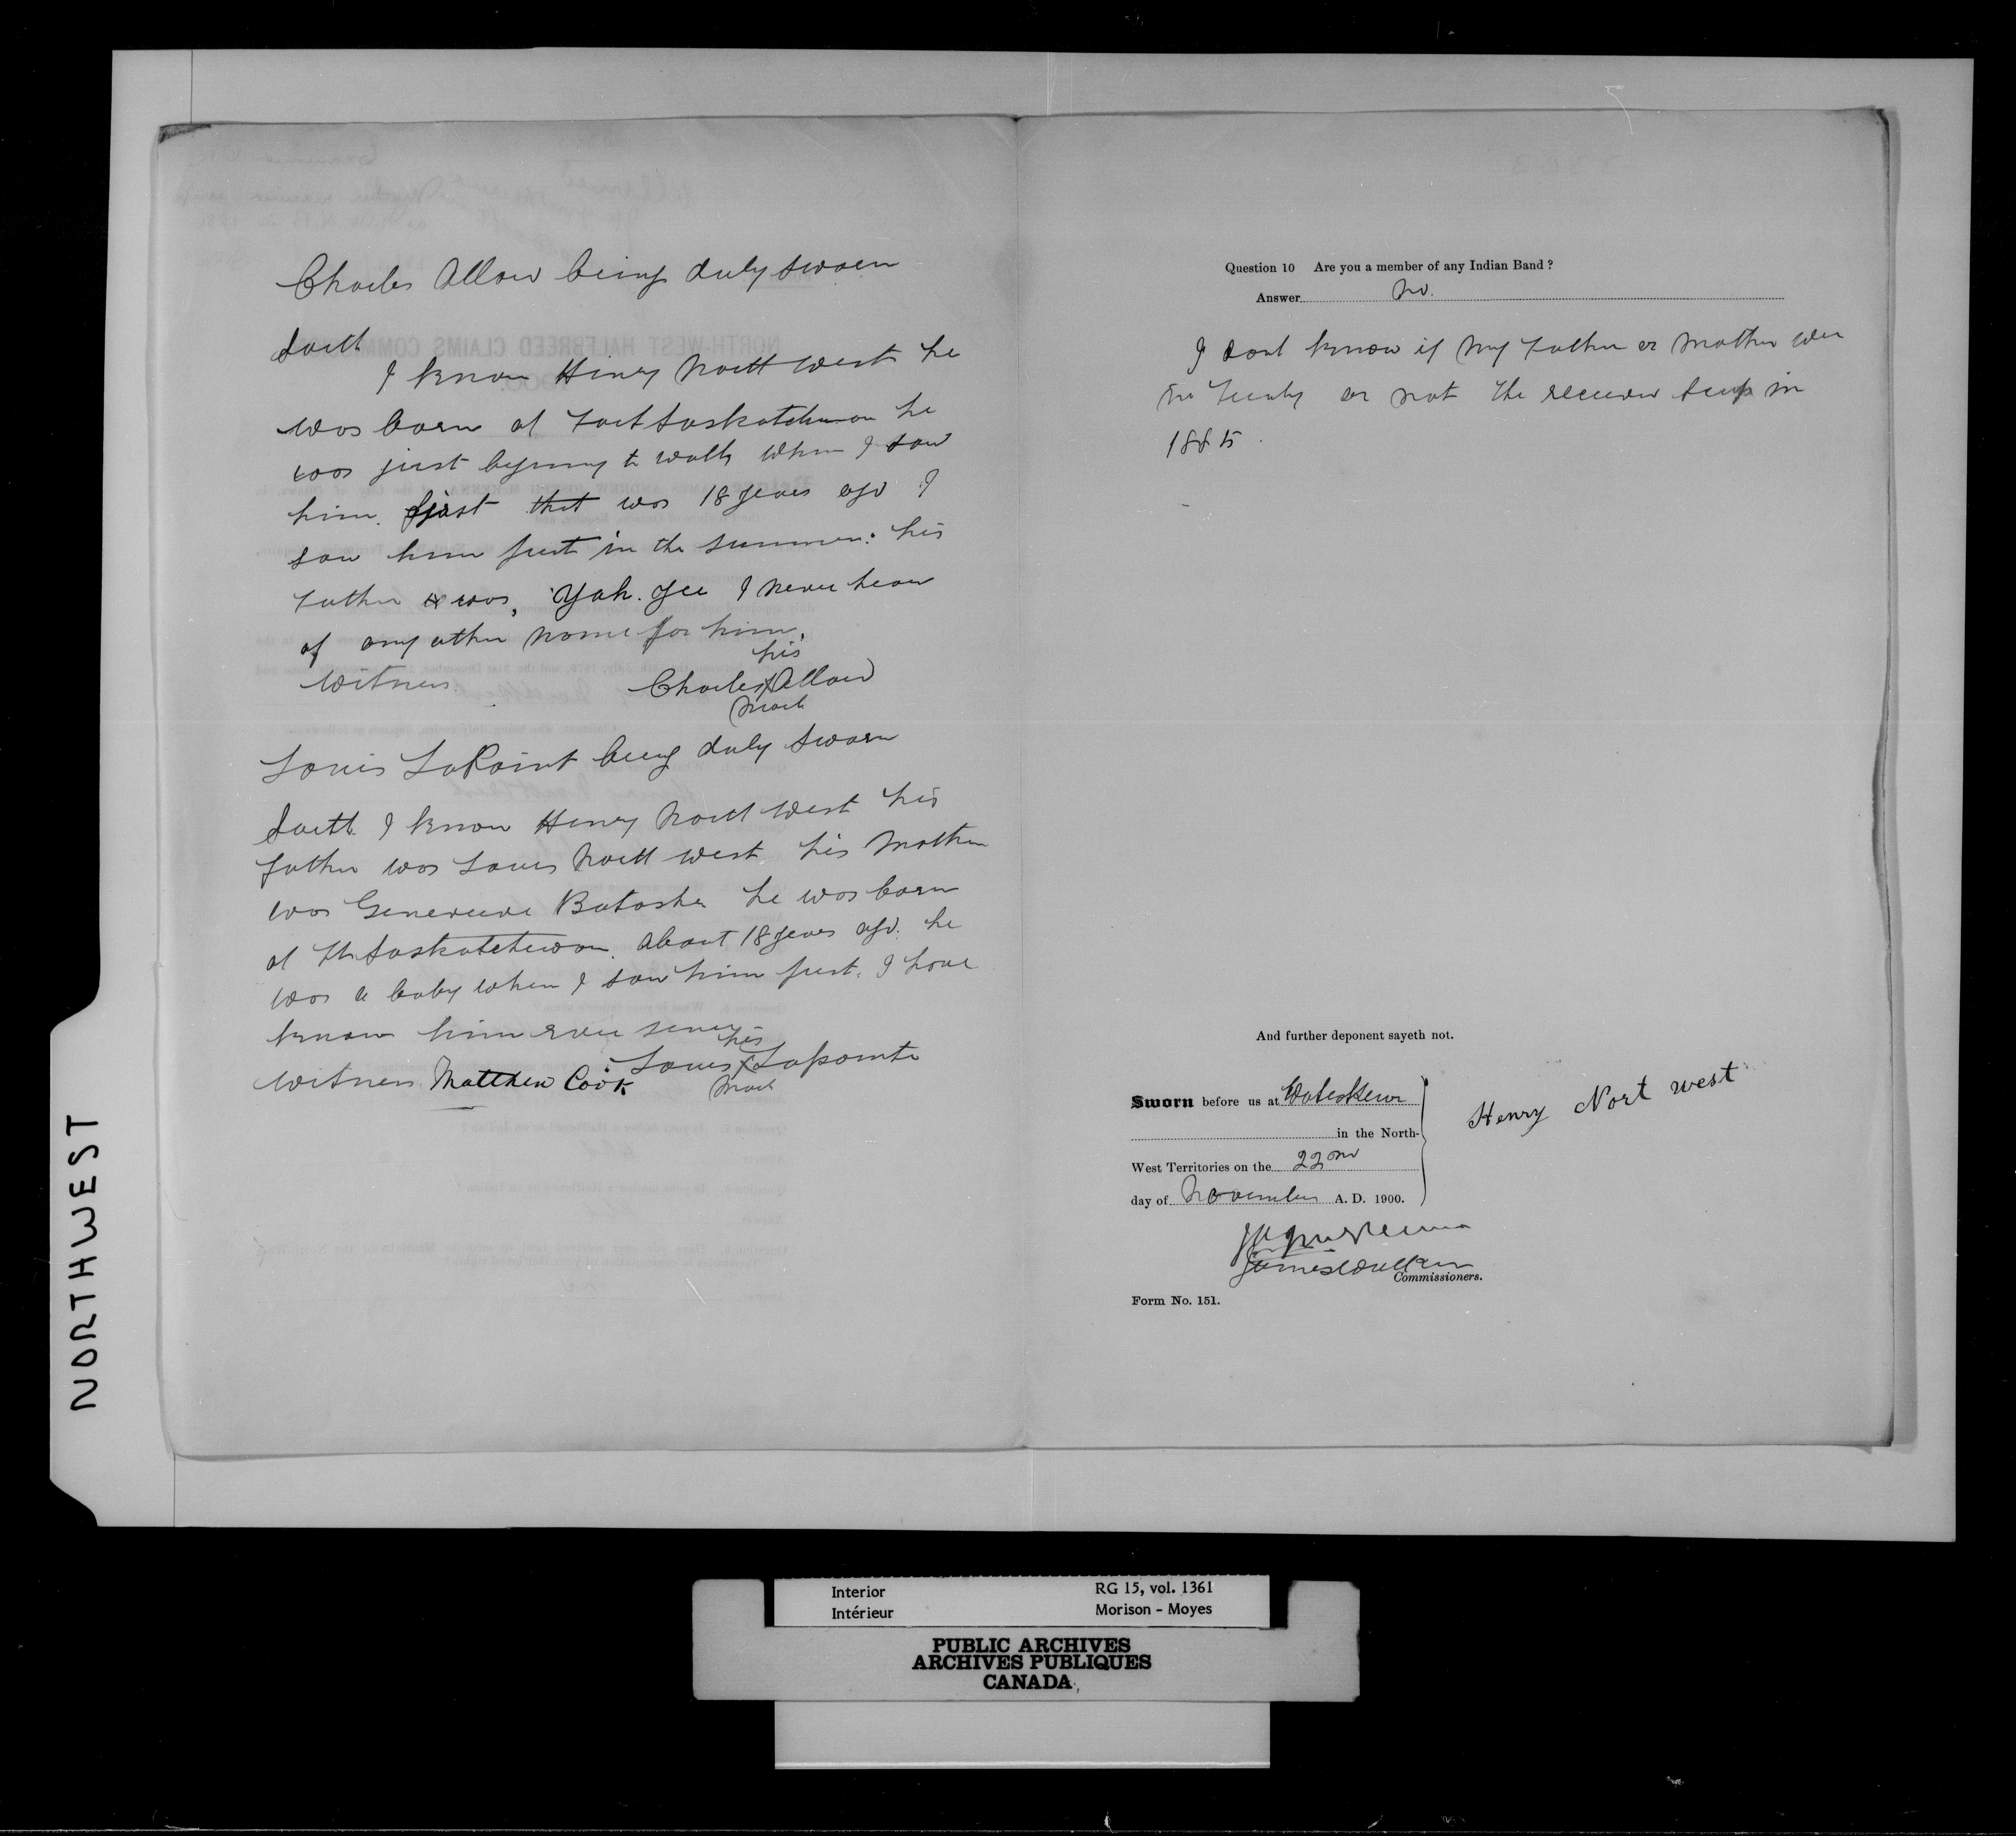 Charles Allow being duly sworn
Saith
I know Henry North West he
was born at Fort Saskatchewan he
was just begining to walk when I saw
him. first that was 18 years ago I
saw him first in the summer. his
Father was, Yah. Yee I never hear
of any other name for him.
his
Witness. Charles X Allow
Mark
Louis LaPoint being duly sworn
Saith I know Henry North West his
father was Louis North West his Mother
was Genevieve Batoshe he was born
at Ft Saskatchewan. About 18 years ago. he
was a baby when I saw him first. I have
know him ever since
his
Witness Matthew Cook Louis X Lapointe
Mark
Question 10 Are you a member of any Indian Band ?
Answer no.
I dont know if my Father or Mother wer
in Treaty or not the receiver scrip in
1885.
And further deponent sayeth not.
Sworn before us at Wetaskewin
in the North-
West Territories on the 22nd
day of November A. D. 1900.
Henry Nort west
James Walker
Commissioners.
Form No. 151.
NORTHWEST
Interior RG 15, vol. 1361
Intérieur Morison - Moyes
PUBLIC ARCHIVES
ARCHIVES PUBLIQUES
CANADA